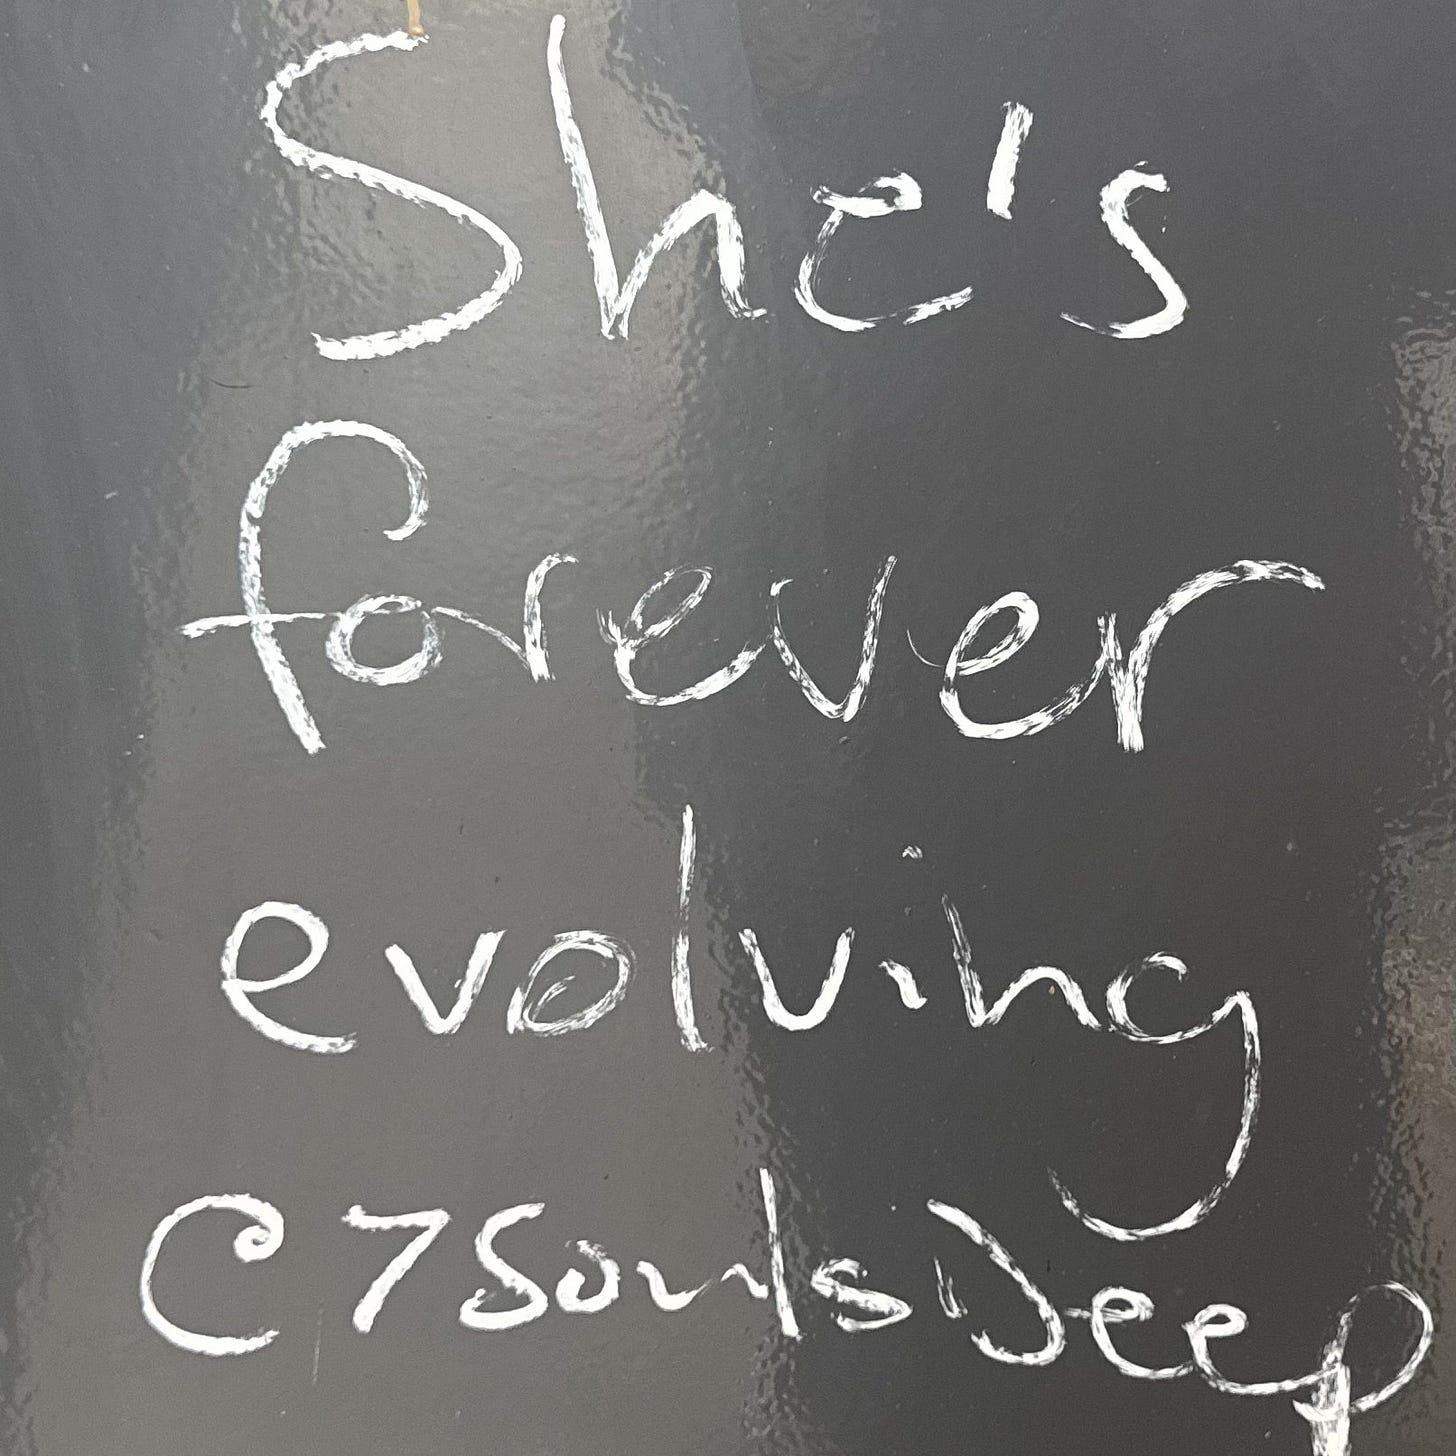 She's
forever
evolving
C7SoulsDeep